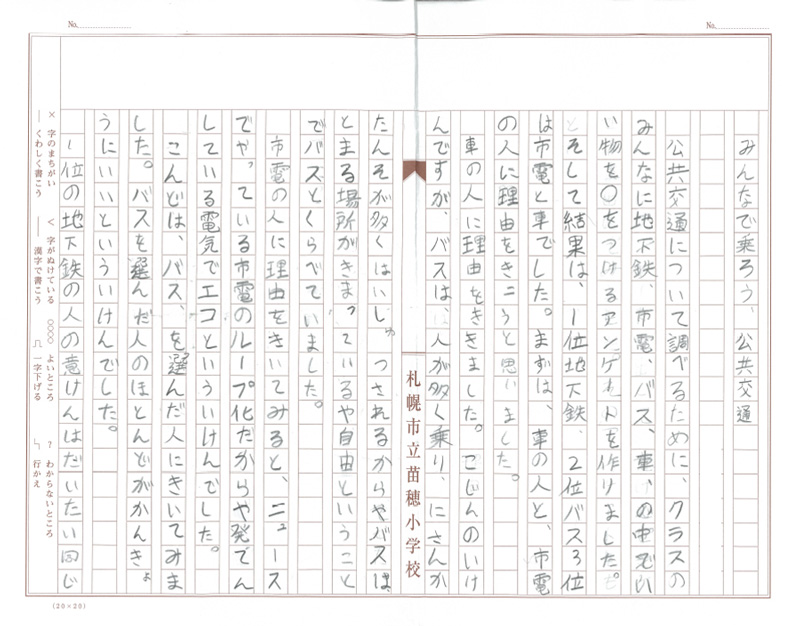 No.
No.
みんなで乗ろう、公共交通
公共交通について調べるために、クラスの
みんなに地下鉄、市電、バス、車、の中でい
い物を○をつけるアンケートを作りました。
そして結果は、1位地下鉄、2位バス3位
は市電と車でした。まずは、車の人と、市電
の人に理由をきこうと思いました。
車の人に理由をききました。こじんのいけ
んですが、バスは、人が多く乗り、にさんか
札幌市立苗穂小学校
たんそが多くはいしゅつされるからやバスは、
とまる場所がきまっているや自由ということ
でバスとくらべていました。
市電の人に理由をきいてみると、ニュース
でやっている市電のループ化だからや発でん
している電気でエコといういけんでした。
こんどは、バス、を選んだ人にきいてみま
した。バスを選んだ人のほとんどがかんきょ
うにいいといういけんでした。
1位の地下鉄の人の意けんはだいたい同じ
× 字のまちがい
＜ 字がぬけている
○○○○ よいところ
? わからないところ
── くわしく書こう
── 漢字で書こう
一字下げる
行かえ
(20×20)